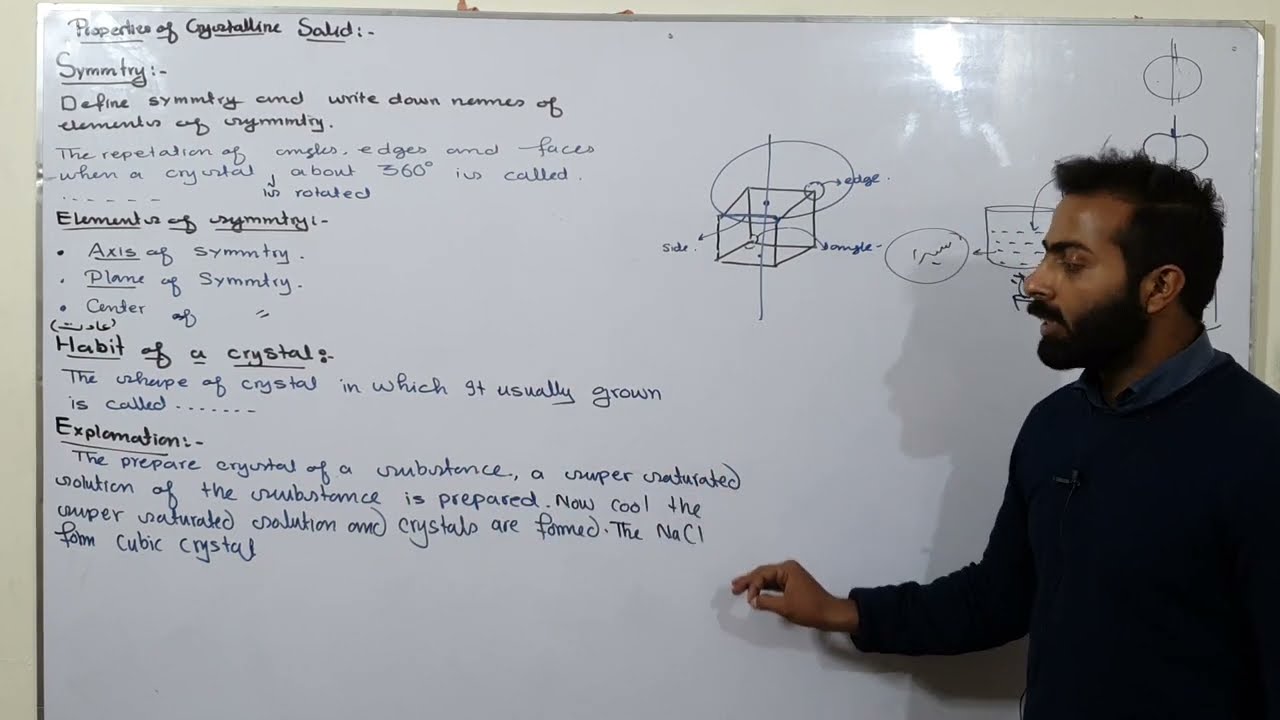 Properties of Crystalline Solid:-
Symmtry:-
Define symmtry and write down nemes of
elements of symmtry.
The repetation of angles, edges and faces
when a crystal, about 360° is called.
is rotated
- - - - - -
Elements of symmtry:-
• Axis of symmtry.
• Plane of Symmtry.
• Center of "
(عادت)
Habit of a crystal:-
The shape of crystal in which It usually grown
is called .......
Explanation:-
The prepare crystal of a substance, a super saturated
solution of the substance is prepared. Now cool the
super saturated solution and crystals are formed. The NaCl
form cubic crystal
edge.
side.
angle-